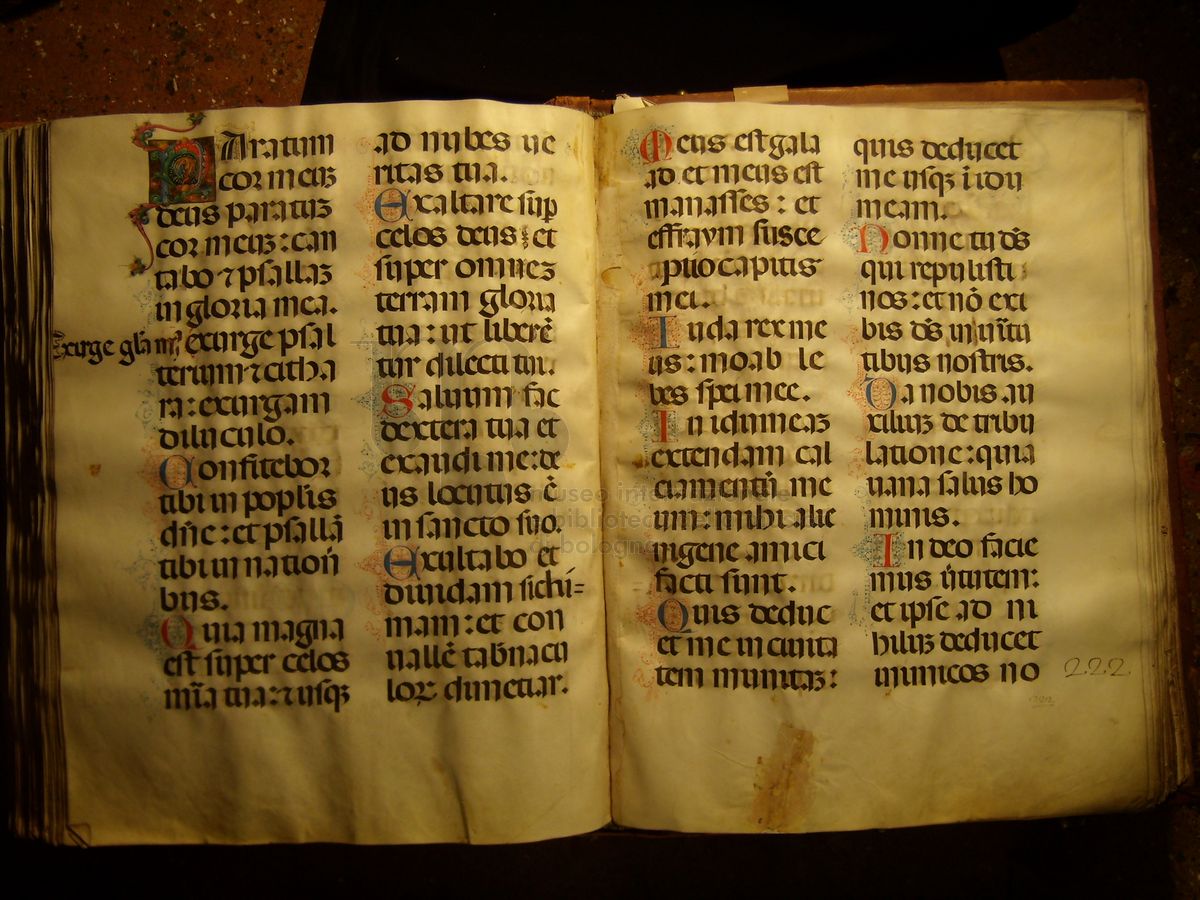 Paratum
cor meuz
deus paratuz
cor meuz : can
tabo ⁊ psallaz
in gloria mea.
Exurge gl̃a m̃
exurge psal
terium ⁊ citha
ra : exurgam
diluculo.
Confitebor
tibi in popl̃is
dñe : et psallã
tibi in nation̄
bus.
Quia magna
est super celos
mĩa tua : ⁊ usqꝫ
ad nubes ue
ritas tua.
Exaltare sup
celos deus : et
super omnez
terram gloria
tua : ut liberẽ
tur dilecti tui.
Saluum fac
dextera tua et
exaudi me : de
us locutus ẽ
in sancto suo.
Exultabo et
diuidam sichi=
mam : et con
uallẽ tabñacu
loꝝ dimetiar.
Meus est gala
ad et meus est
manasses : et
effraym susce
ptio capitis
mei.
Iuda rex me
us : moab le
bes spei mee.
In idumeaz
extendam cal
ciamentũ me
um : mihi alie
nigene amici
facti sunt.
Quis deduc
et me in ciuita
tem munitaz :
quis deducet
me usqꝫ ĩ idu
meam.
Nonne tu ds̃
qui repulisti
nos : et nõ exi
bis ds̃ in uĩtu
tibus nostris.
Da nobis au
xiliuz de tribu
latione : quia
uana salus ho
minis.
In deo facie
mus uĩtutem :
et ipse ad ni
hiluz deducet
inimicos no
222.
museo internazionale
biblioteca
bologna